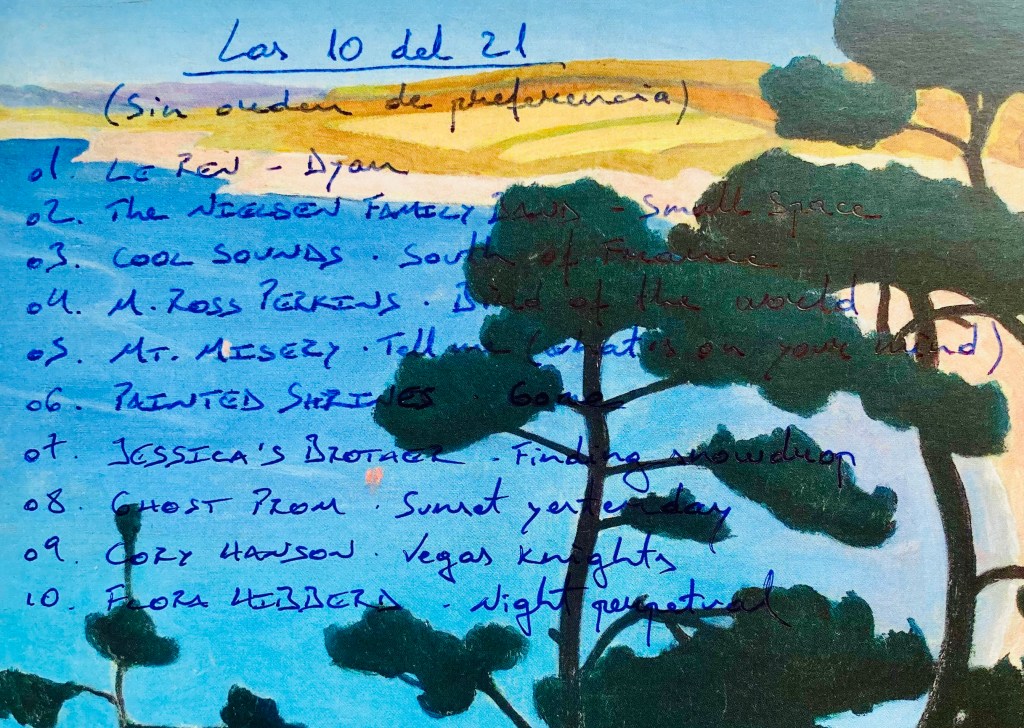 Las 10 del 21
(Sin orden de preferencia)
01. LE REN - Dyan
02. The NIELSEN FAMILY BAND - Small Space
03. COOL SOUNDS · South of France
04. M. ROSS PERKINS · Bird of the world
05. MT. MISERY · Tell me (what is on your mind)
06. PAINTED SHRINES
07. JESSICA'S BROTHER - Finding snowdrop
08. GHOST PROM · Sunset yesterday
09. CORY HANSON · Vegas knights
10. FLORA HIBBERD · Night perpetual